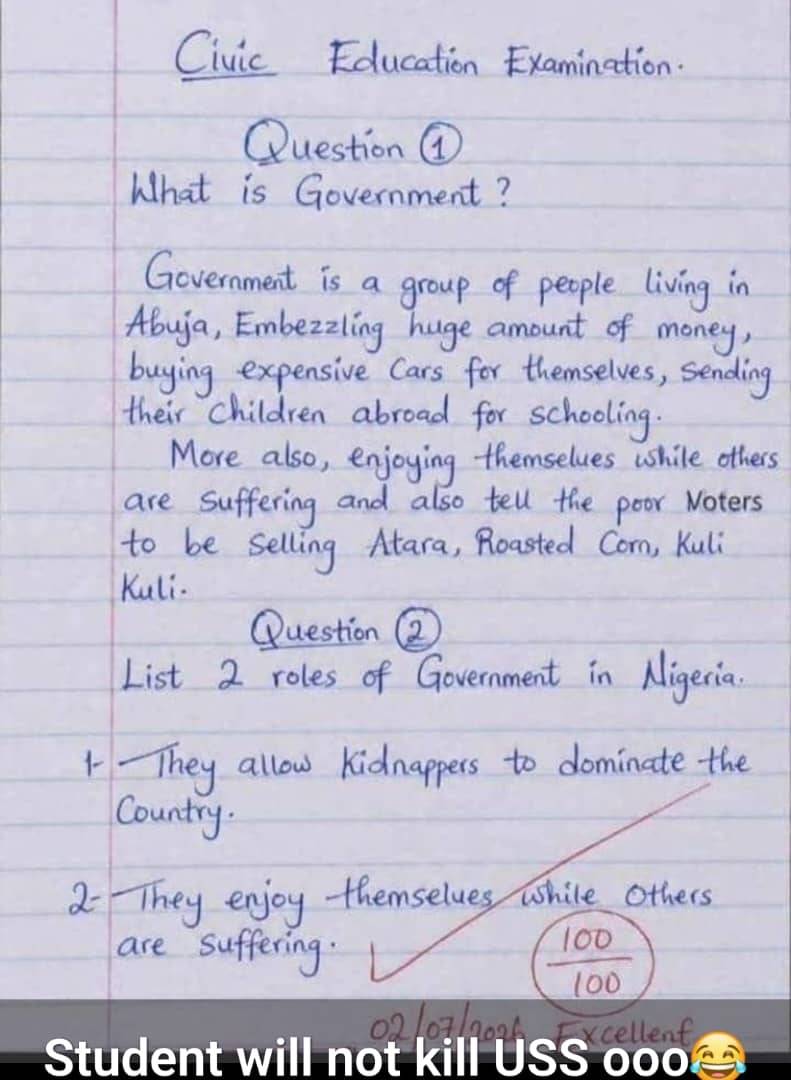 Civic Education Examination.
Question ①
What is Government?
Government is a group of people living in
Abuja, Embezzling huge amount of money,
buying expensive Cars for themselves, Sending
their Children abroad for schooling.
More also, enjoying themselues while others
are Suffering and also tell the poor Voters
to be Selling Atara, Roasted Corn, Kuli
Kuli.
Question ②
List 2 roles of Government in Nigeria.
1- They allow Kidnappers to dominate the
Country.
2- They enjoy themselues while Others
are Suffering.
100
100
02/07/2026 Excellent
Student will not kill USS ooo😂